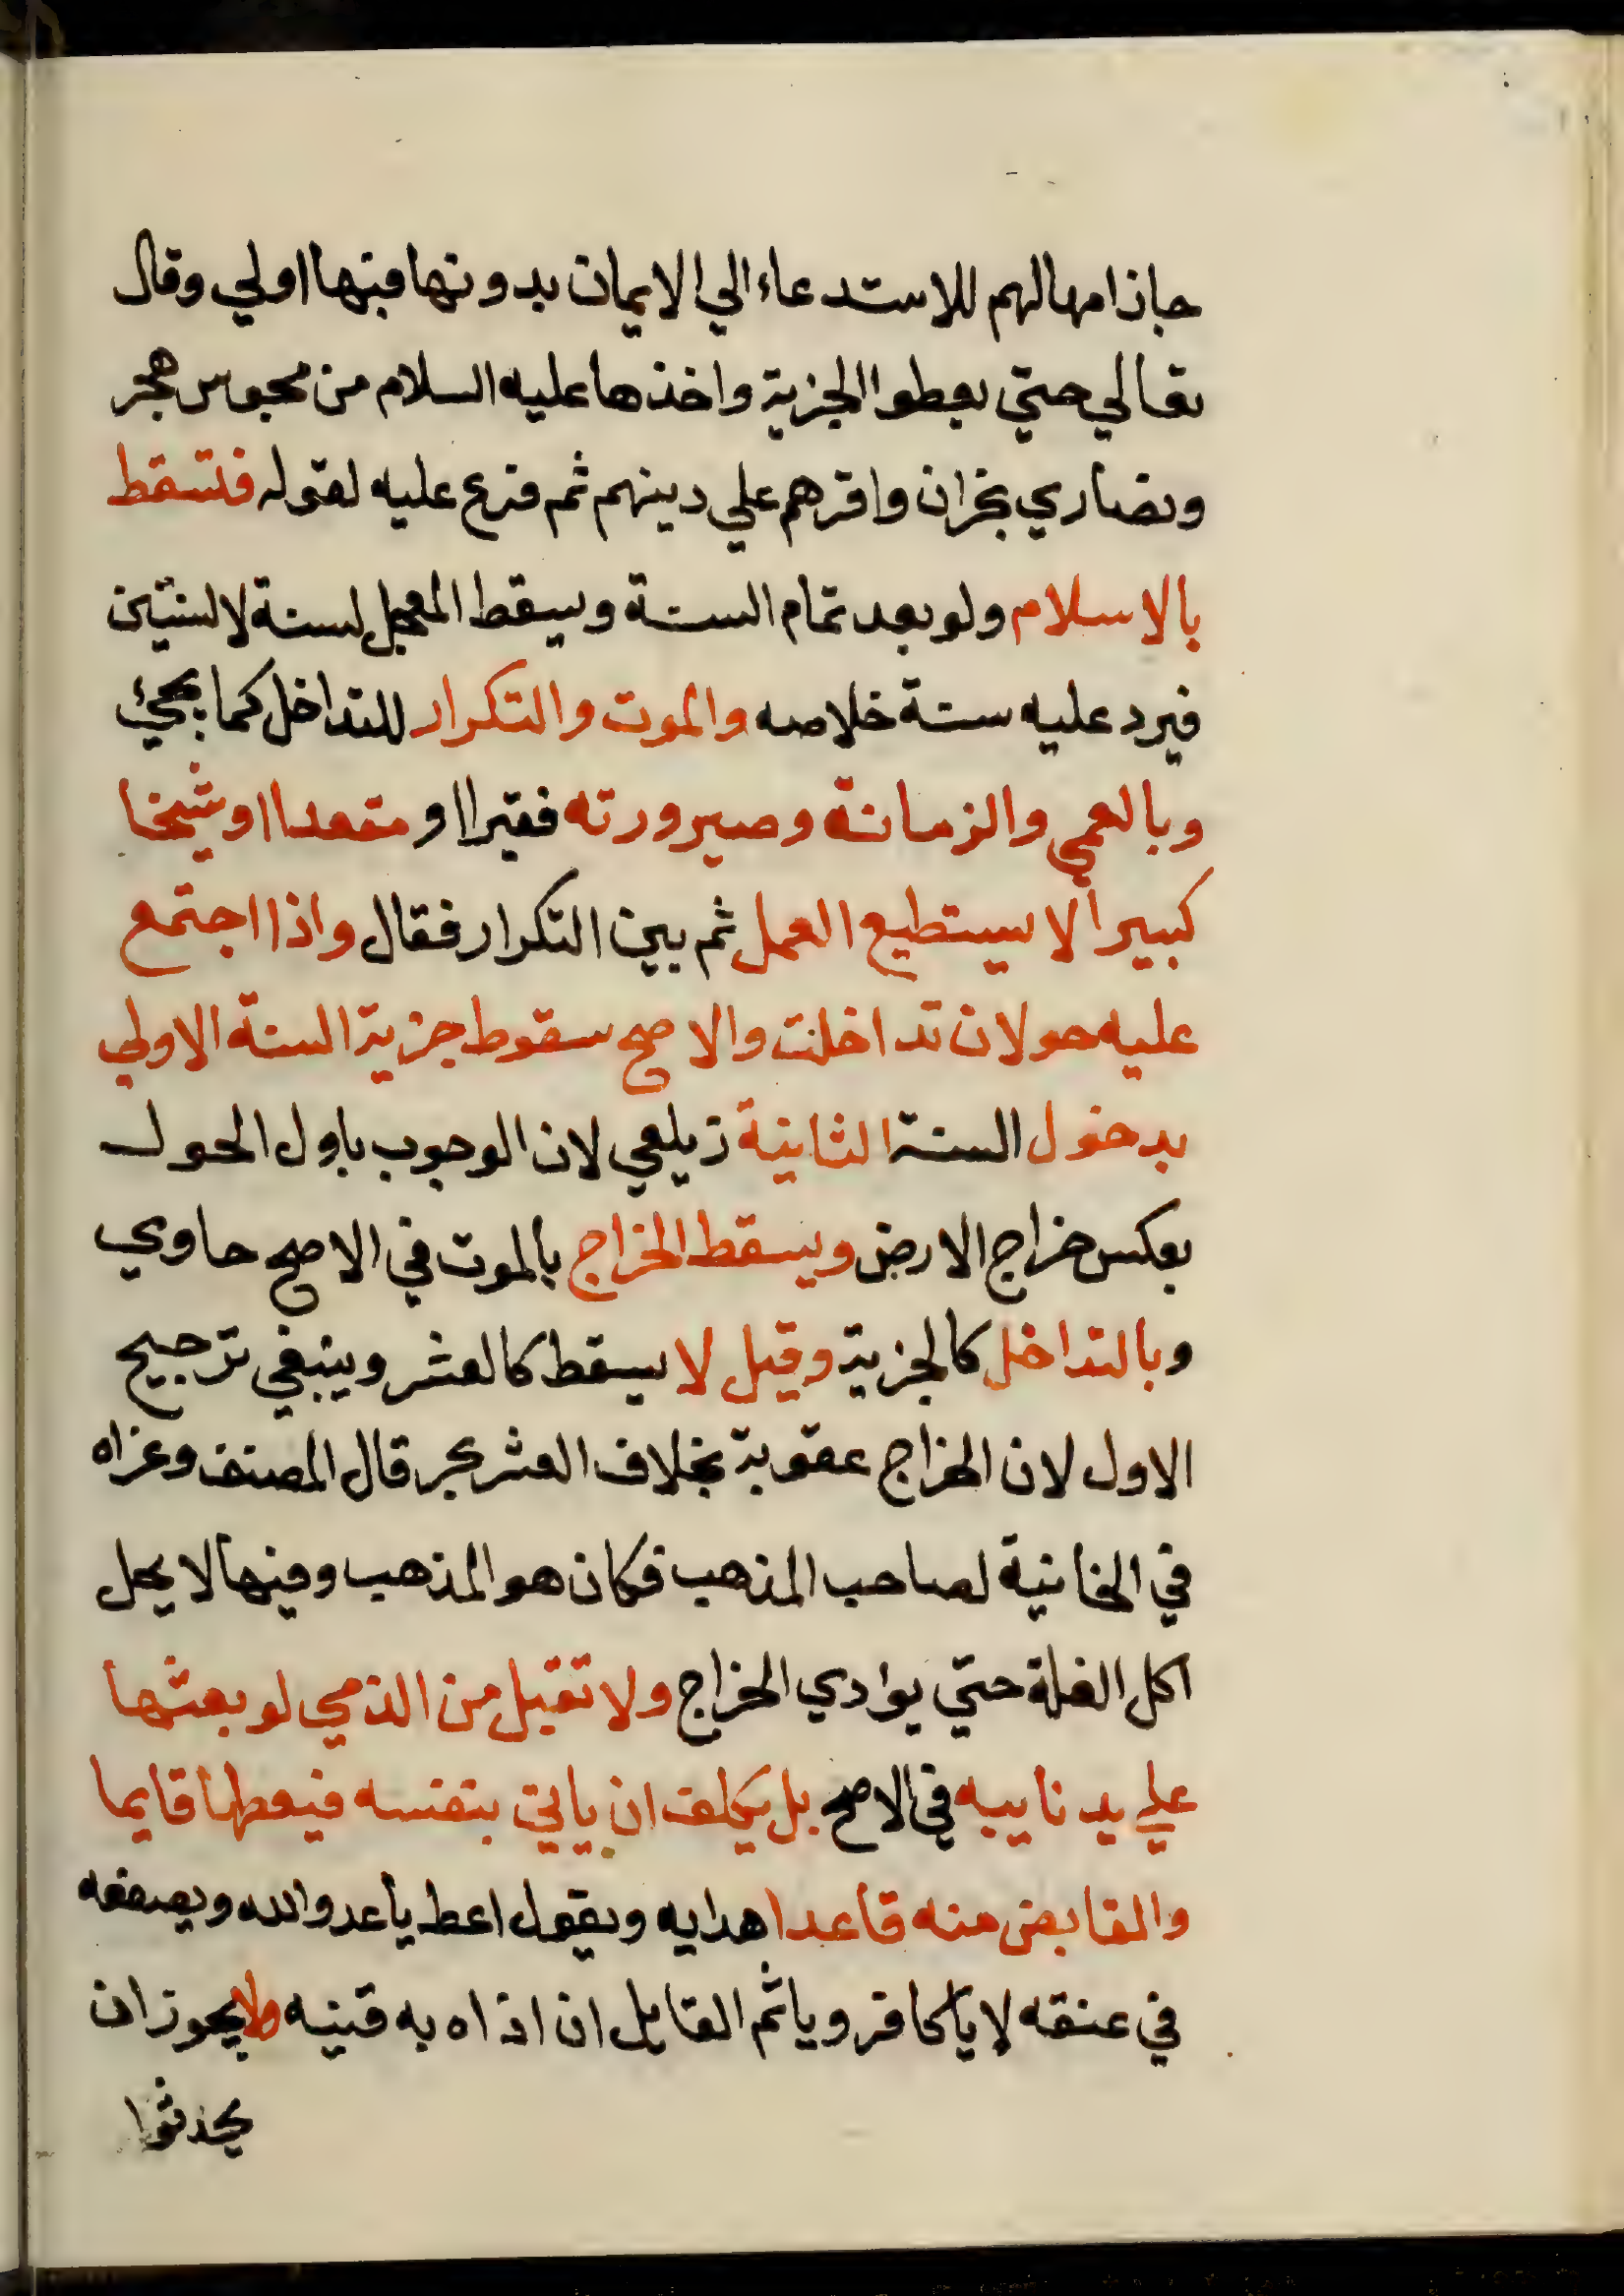 جاز امهالهم للاستدعاء الي الايمان بدونها فبها اولي وقال
تعالي حتي يعطوا الجزية واخذها عليه السلام من مجوس هجر
ونصاري نجران واقرهم علي دينهم ثم فرع عليه لقوله فتسقط
بالاسلام ولو بعد تمام السنة ويسقط المعجل لسنة لا لسنتين
فيرد عليه سنة خلاصه والموت والتكرار للتداخل كما يجئ
وبالعمي والزمانة وصيرورته فقيرا او مقعدا او شيخا
كبيرا لا يستطيع العمل ثم بين التكرار فقال واذا اجتمع
عليه حولان تداخلت والاصح سقوط جزية السنة الاولي
بدخول السنة الثانية زيلعي لان الوجوب باول الحول
بعكس خراج الارض ويسقط الخراج بالموت في الاصح حاوي
وبالتداخل كالجزية وقيل لا يسقط كالعشر وينبغي ترجيح
الاول لان الخراج عقوبة بخلاف العشر بحر قال المصنف وعزاه
في الخانية لصاحب المذهب فكان هو المذهب وفيها لا يحل
اكل الغلة حتي يوادي الخراج ولا تقبل من الذمي لو بعثها
علي يد نايبه في الاصح بل يكلف ان ياتي بنفسه فيعطها قايما
والقابض منه قاعدا هدايه ويقول اعط يا عدو الله ويصفعه
في عنقه لا يا كافر وياثم القايل ان اذاه به قنيه ولا يجوز ان
يحدثوا